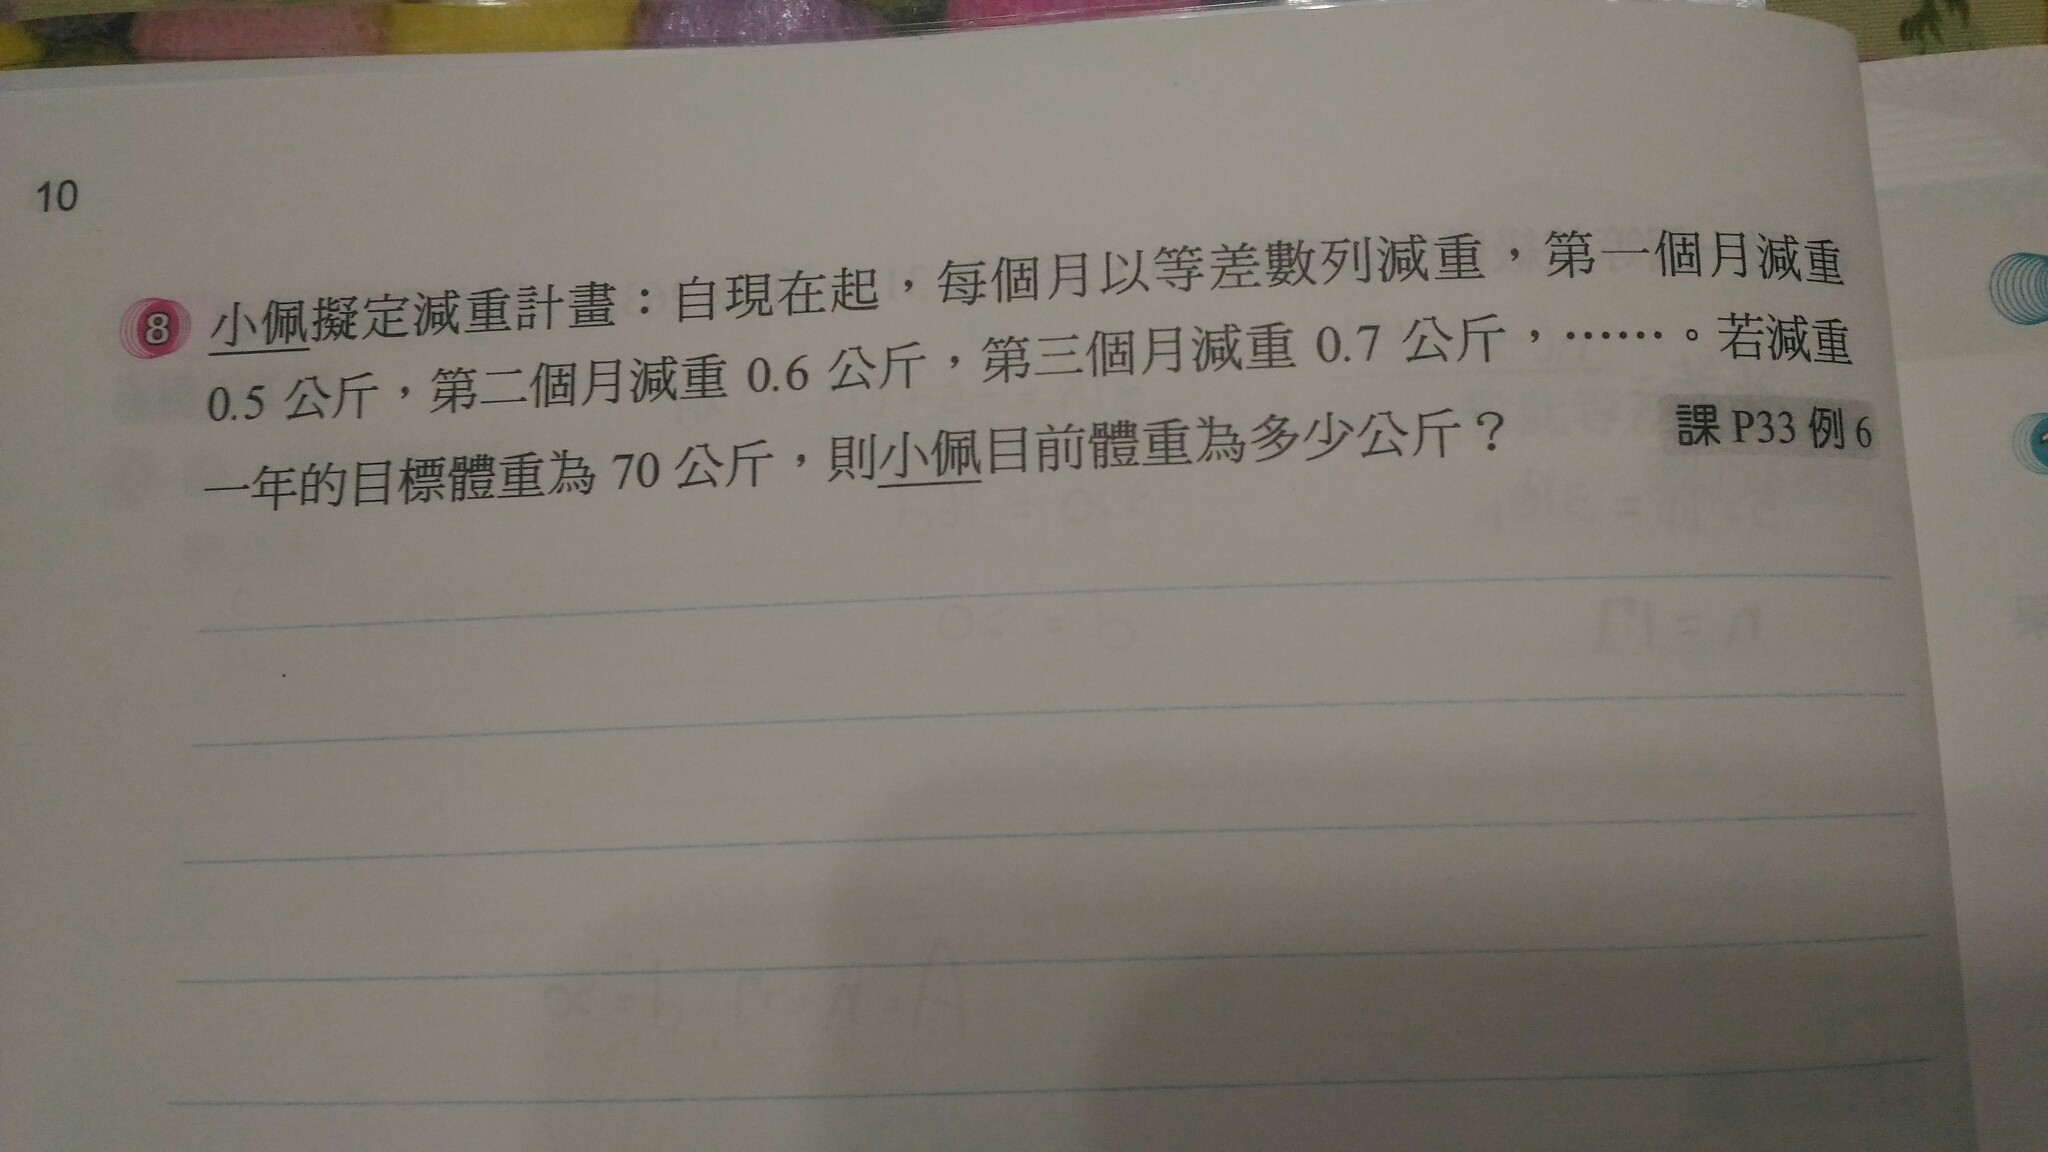 10
8 小佩擬定減重計畫：自現在起，每個月以等差數列減重，第一個月減重
0.5 公斤，第二個月減重 0.6 公斤，第三個月減重 0.7 公斤，……。若減重
一年的目標體重為 70 公斤，則小佩目前體重為多少公斤？ 課 P33 例 6